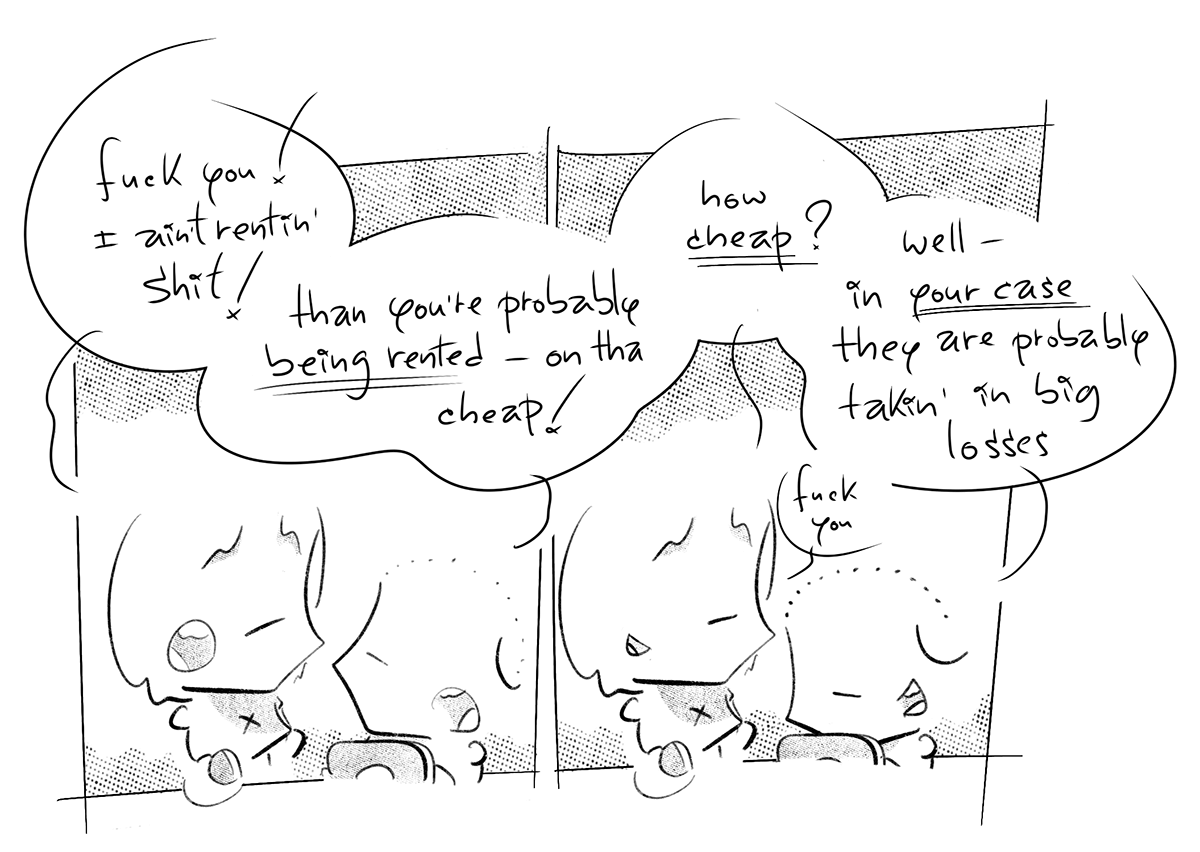 fuck you!
I ain't rentin'
shit!
than you're probably
being rented – on tha
cheap!
how
cheap?
well –
in your case
they are probably
takin' in big
losses
fuck
you